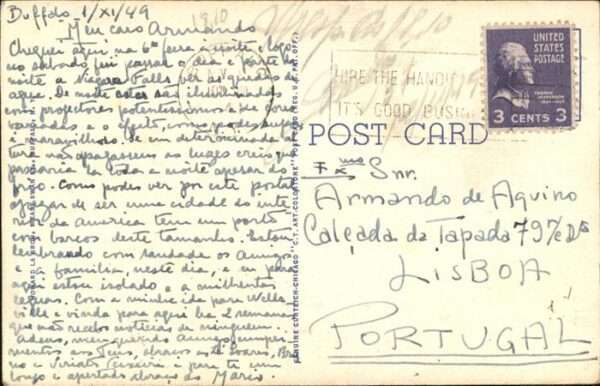 Buffalo 1/XI/49
Meu caro Armando
Cheguei aqui na 6ª feira à noite e logo
no sabado fui passar o dia e parte da
noite a Niagara Falls ver as quedas de
agua. De noite estas são iluminadas
com projectores potentissimos e de cores
variadas e o efeito, como podes supor
é maravilhoso. Se em determinada al-
tura não apagassem as luzes creio que
passaria lá toda a noite apesar do
frio. Como podes ver por este postal
apezar de ser uma cidade do inte-
rior da America tem um porto
com barcos deste tamanho. Estou
lembrando com saudade os Amigos
e familia, neste dia, e eu para
aqui estou isolado e a milhentas
leguas. Com a minha ida para Wells-
ville e vinda para aqui ha 2 semanas
que não recebo noticias de ninguem.
Adeus, meu querido Amigo cumpri-
mentos aos Teus, abraços ao Soares, Bru
no e Viriato Teixeira e para ti um
longo e apertado abraço do Marco.
19.10
HIRE THE HANDI
IT'S GOOD BUSI
UNITED
STATES
POSTAGE
THOMAS
JEFFERSON
3 CENTS 3
POST-CARD
Exmo Snr.
Armando de Aquino
Calçada da Tapada 79
LISBOA
PORTUGAL
GENUINE CURTEICH-CHICAGO "C.T. ART-COLORTONE" POST CARD (REG. U.S. PAT. OFF.)